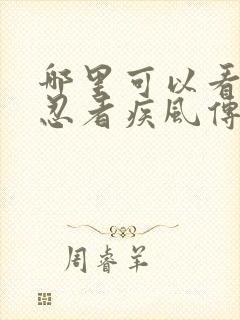 哪里可以看
忍者疾风傳
周睿羊